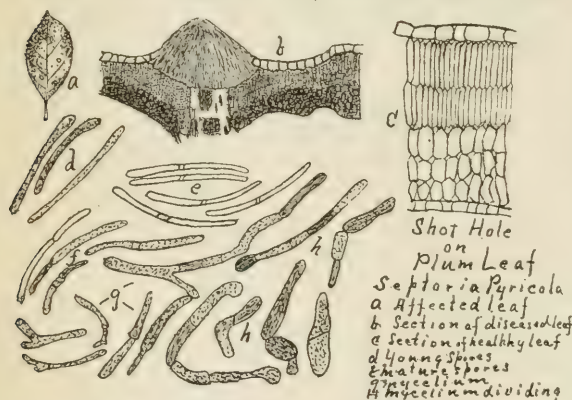 a
b
C
d
e
f
g
h
h
Shot Hole
on
Plum Leaf
Septoria Pyricola
a Affected leaf
b Section of diseased leaf
c Section of healthy leaf
d Young spores
e mature spores
g mycelium
H mycelium dividing